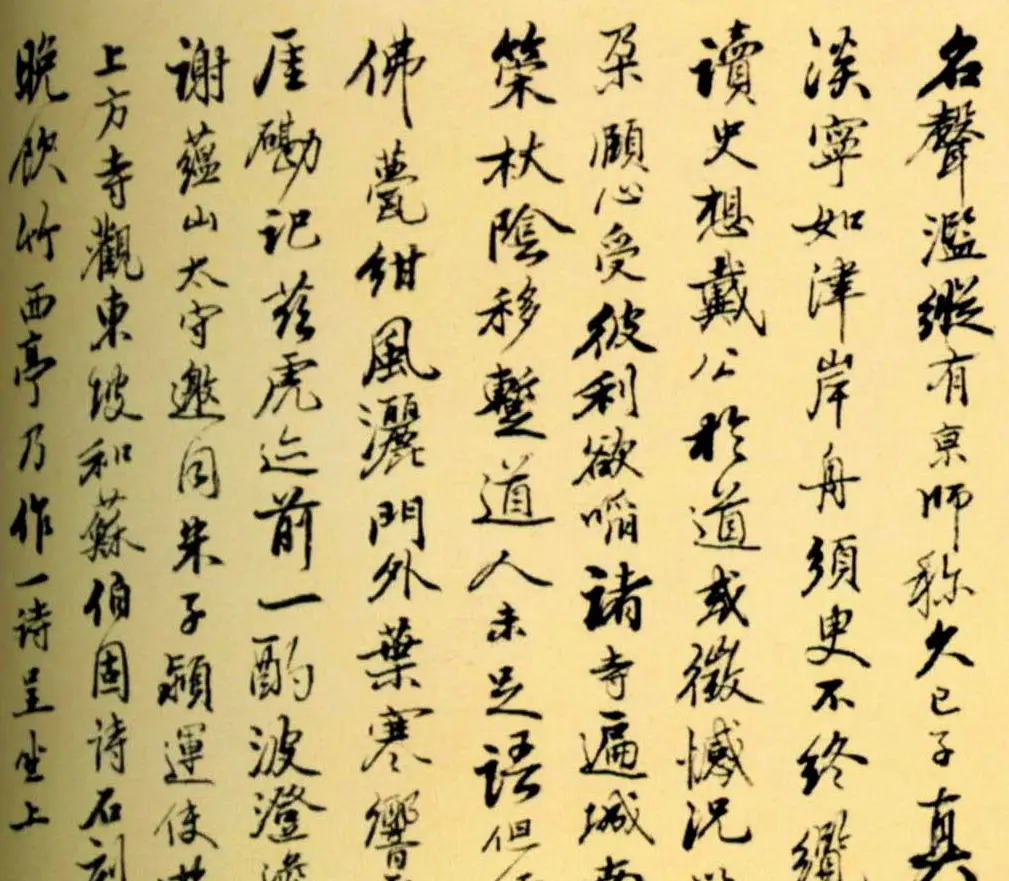 名聲濫縱有京師称久已子真
淡寧如津岸舟須臾不終繼
讀史想戴公於道或徵憾況
朵頤心受彼利欲啗諸寺遍城南
築杖陰移蹔道人未足語但
佛甍紺風灑門外葉寒響
厓磡記茲虎迹前一酌波澄澹
謝蘊山太守邀同朱子潁運使
上方寺觀東坡和蘇伯固詩石刻
晚飲竹西亭乃作一詩呈坐上